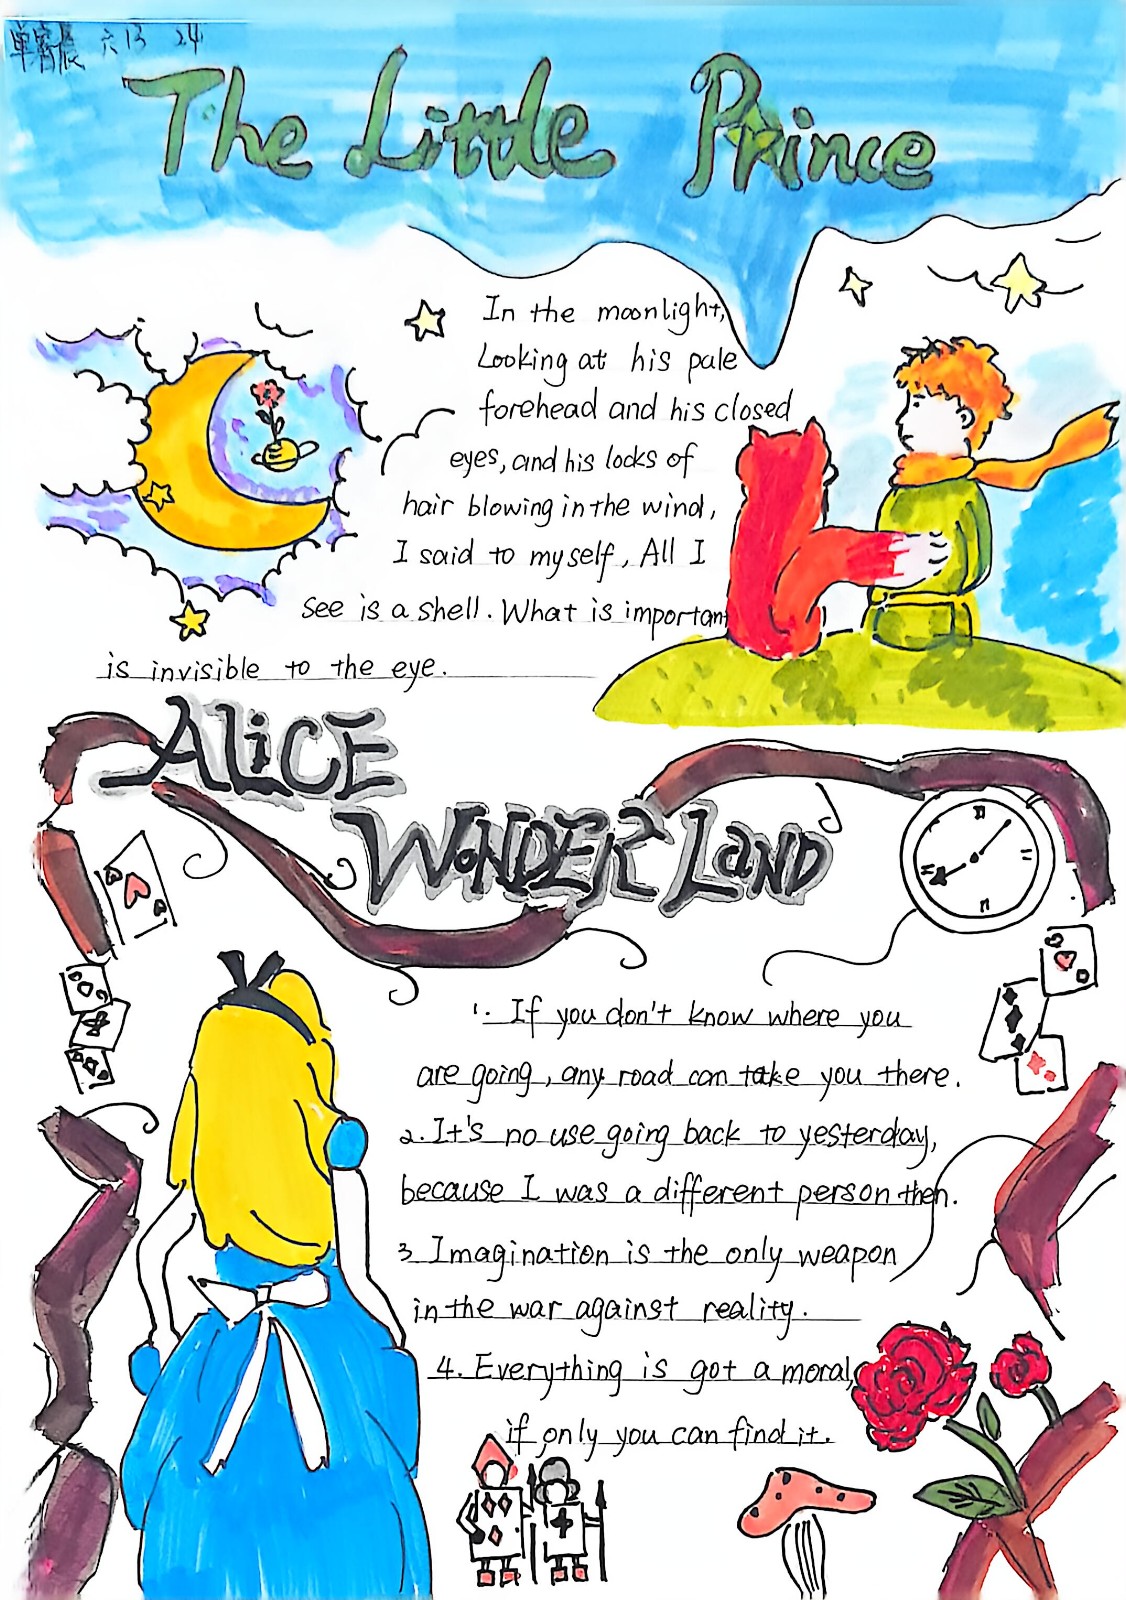 单睿晨 六13 24
The Little Prince
In the moonlight,
Looking at his pale
forehead and his closed
eyes, and his locks of
hair blowing in the wind,
I said to myself, All I
see is a shell. What is important
is invisible to the eye.
ALiCE
WONDER LaND
1. If you don't know where you
are going, any road can take you there.
2. It's no use going back to yesterday,
because I was a different person then.
3 Imagination is the only weapon
in the war against reality.
4. Everything is got a moral,
if only you can find it.